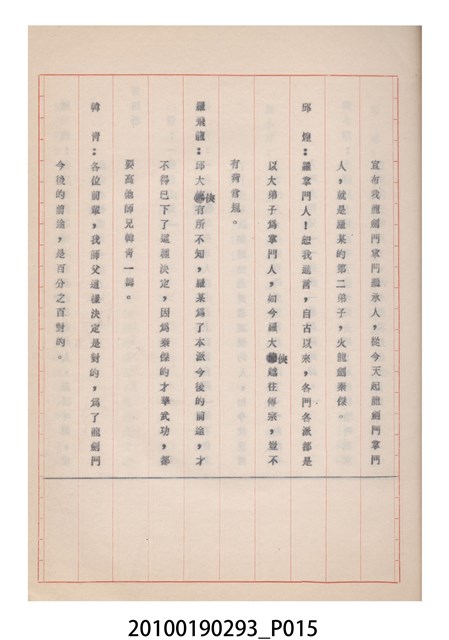 宣布我龍劍門掌門繼承人，從今天起龍劍門掌門
人，就是羅某的第二弟子，火龍劍秦傑。
邱　煌：羅掌門人！恕我進言，自古以來，各門各派都是
以大弟子為掌門人，如今羅大俠越往傳宗，豈不
有背常規。
羅飛龍：邱大俠有所不知，羅某為了本派今後的前途，才
不得已下了這種決定，因為秦傑的才華武功，都
要高他師兄韓青一籌。
韓　青：各位前輩，我師父這樣決定是對的，為了龍劍門
今後的前途，是百分之百對的。
20100190293_P015